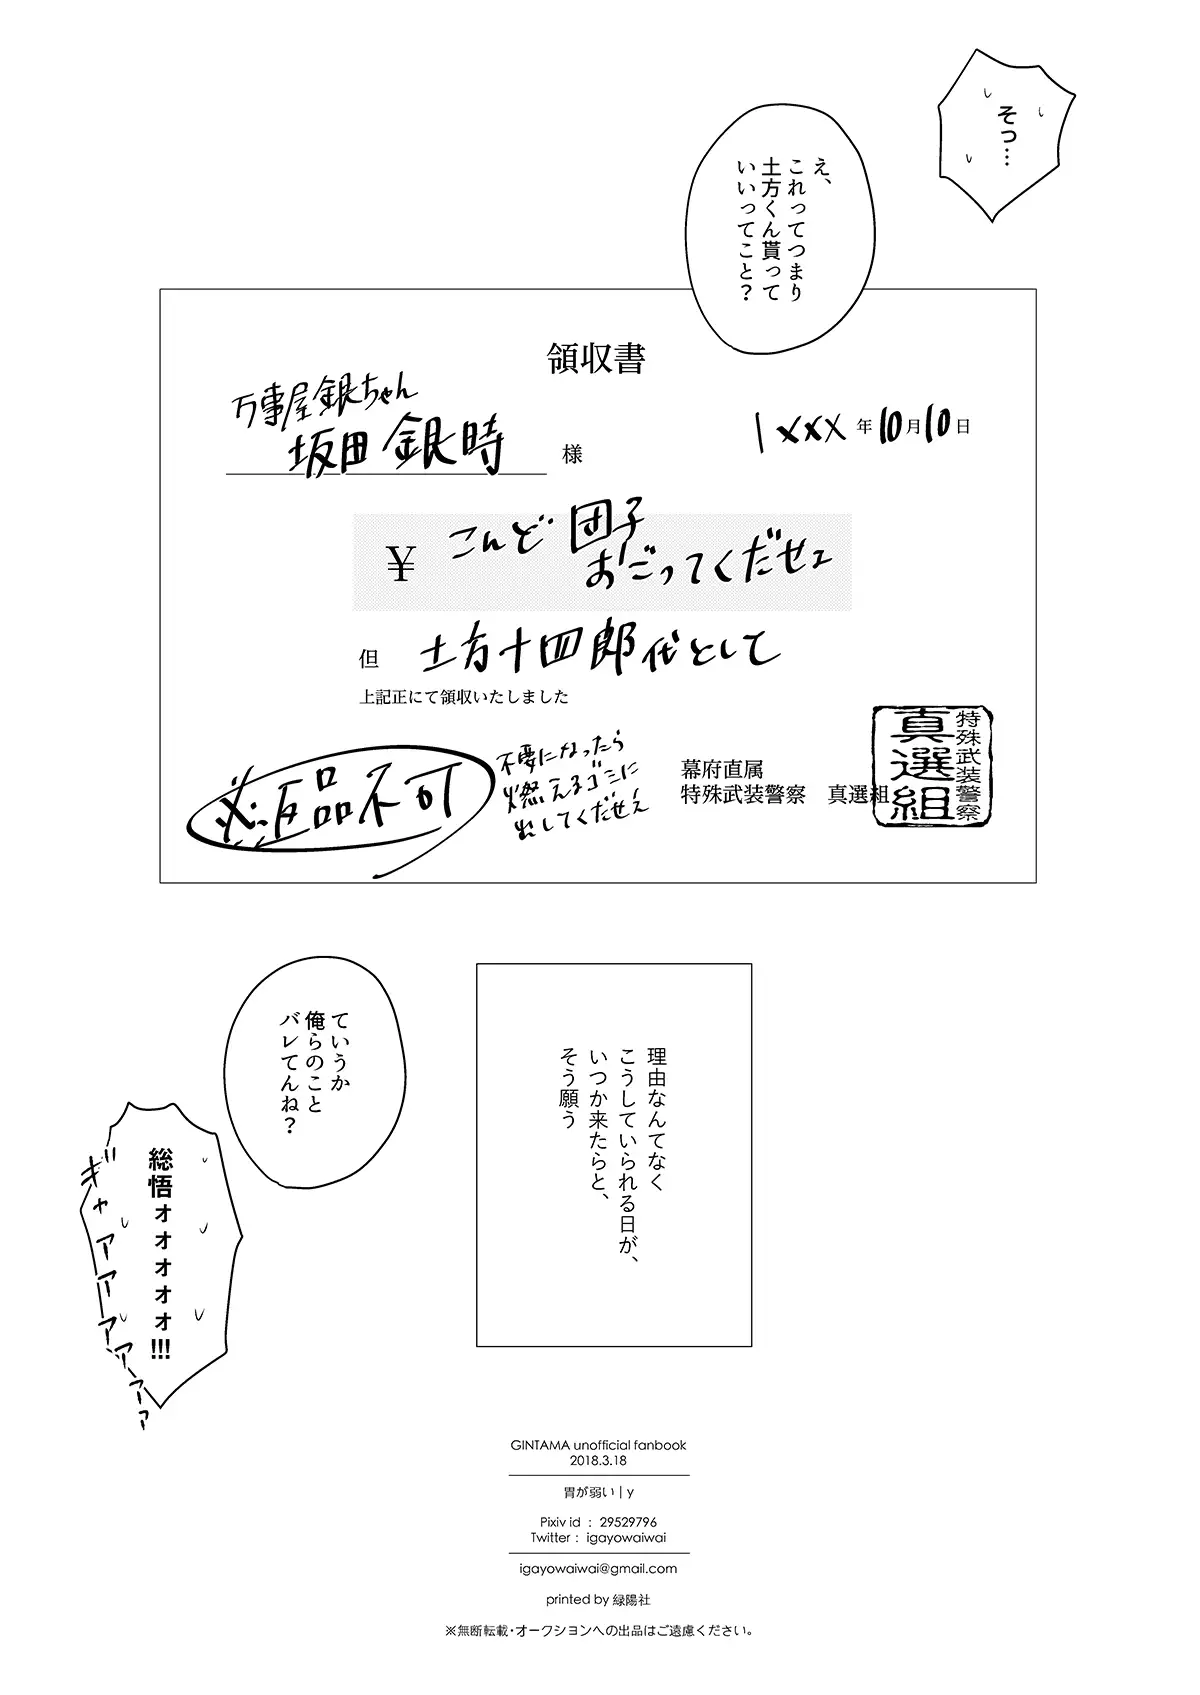 そっ…
え、
これってつまり
土方くん貰って
いいってこと?
領収書
万事屋銀ちゃん
坂田銀時 様
1xxx年10月10日
¥ こんど団子
おごってくだせェ
但 土方十四郎代として
上記正にて領収いたしました
※返品不可
不要になったら
燃えるゴミに
出してくだせェ
幕府直属
特殊武装警察 真選組
特殊武装警察
真選組
ていうか
俺らのこと
バレてんね?
総悟ォォォォォ!!!
ギャアアアアーーァ
理由なんてなく
こうしていられる日が、
いつか来たらと、
そう願う
GINTAMA unofficial fanbook
2018.3.18
胃が弱い | y
Pixiv id : 29529796
Twitter : igayowaiwai
igayowaiwai@gmail.com
printed by 緑陽社
※無断転載・オークションへの出品はご遠慮ください。